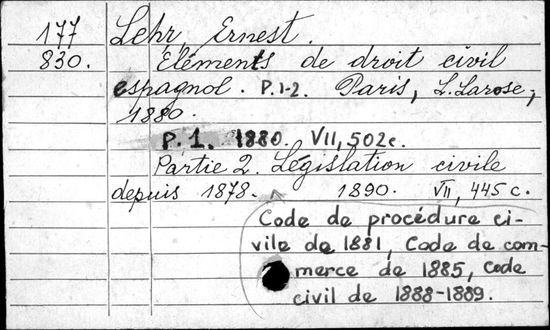 177 Lehr, Ernest.
830. Eléments de droit civil
espagnol. P.1-2. Paris, L. Larose,
1880.
P. 1. 1880. VII, 502 c.
Partie 2. Législation civile
depuis 1878. 1890. VII, 445 c.
Code de procédure ci-
vile de 1881, Code de com-
merce de 1885, Code
civil de 1888-1889.